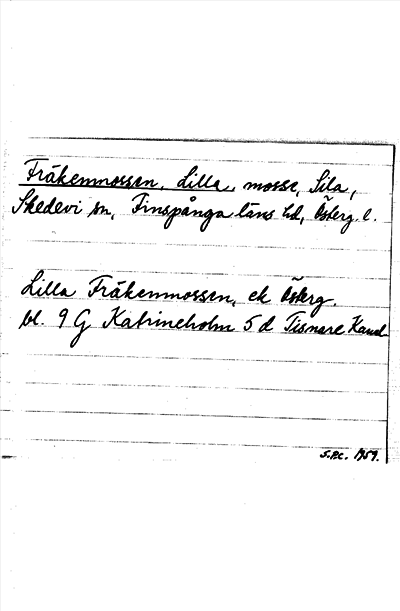 Fräkenmossen, Lilla, mosse, Sila,
Skedevi sn, Finspånga läns hd, Österg. l.
Lilla Fräkenmossen, ek Österg.
bl. 9 G Katrineholm 5 d Tisnare Kanal
S.P.C. 1959.